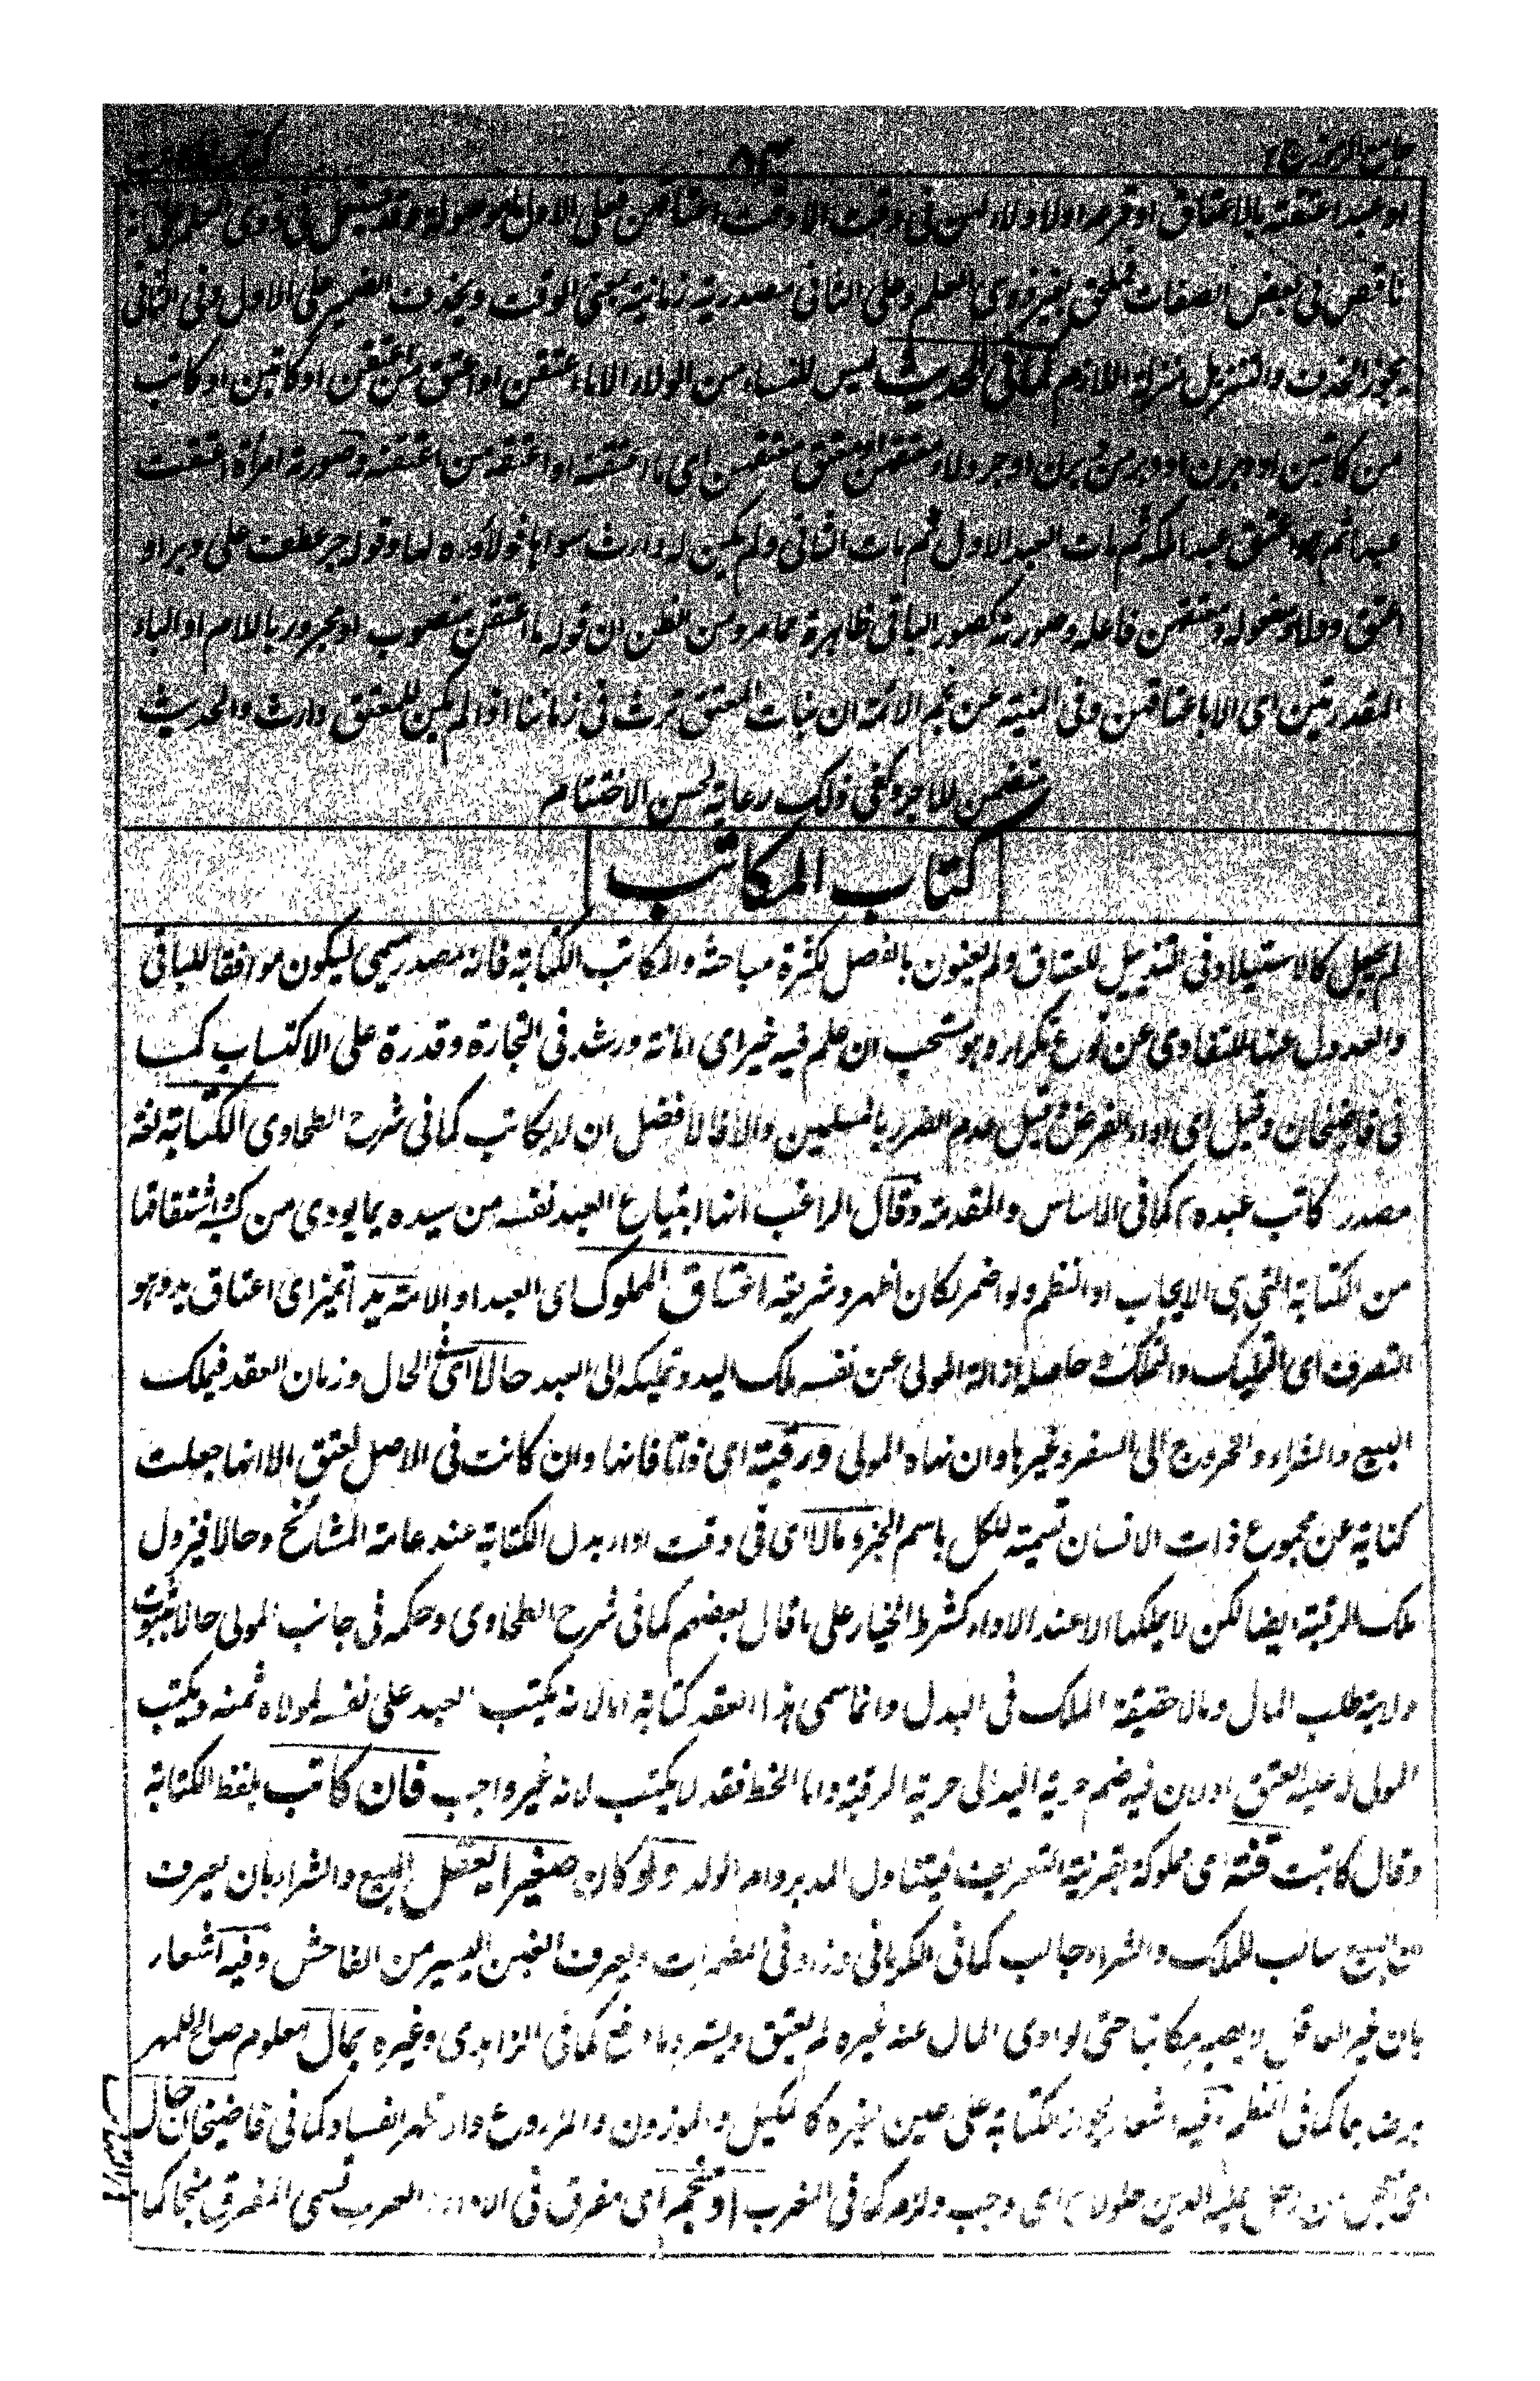 جامع الرموز ج ٢ ٨٣
او عبد اعتقته بالاعتاق او قر به اولا ولاء لهن فى وقت الا وقت اعتاقهن فعلى الاول
ناقص فى بعض الصفات فيلحق بغير ذوى العلم وعلى الثانى مصدرية زمانية بمعنى الوقت ويحذف الضمير على الاول وفى الثانى
يجوز الحذف والتنزيل منزلة اللازم كما فى الحديث ليس للنساء من الولاء الا ما اعتقن او اعتق من اعتقن او كاتبن او كاتب
من كاتبن او دبرن او دبر من دبرن او جر ولاء معتقهن او معتق معتقهن اى ما اعتقته او اعتقه من اعتقته وصورته امرأة اعتقت
عبدا ثم هو اعتق عبدا آخر ثم مات العبد الاول ثم مات الثانى ولم يكن له وارث سواها فولاؤه لها وقوله جر عطف على دبر او
اعتق وولاء مفعوله ومعتقهن فاعله وصورته كصور الباقى ظاهرة مما مر ومن الظن ان قوله ما اعتقن منصوب او مجرور باللام او الباء
المقدرتين اى الا باعتاقهن وفى المنية عن نجم الائمة ان بنات المعتق ترث فى زماننا اذا لم يكن للمعتق وارث والحديث
متضمن للاجر وكفى ذلك رعاية لحسن الاختتام
كتاب المكاتب
لم يجعل كالاستيلاد فى التذييل للعتاق ولم يعنون بالفصل لكثرة مباحثه والمكاتب الكتابة فانه مصدر ميمى ليكون موافقا للباقى
والعدول عنها للتفادى عن نوع تكرار وهو مستحب ان علم فيه خيرا اى امانة ورشد فى التجارة وقدرة على الاكتساب كما
فى قاضيخان وقيل اى اداء الفرض وقيل عدم الضرر بالمسلمين والا فالافضل ان لا يكاتب كما فى شرح الطحاوى الكتابة لغة
مصدر كاتب عبده كما فى الاساس والمقدمة وقال الراغب انها ابتياع العبد نفسه من سيده بما يودى من كسبه اشتقاقها
من الكتابة التى هى الايجاب او النظم ولو اضمر لكان اظهر وشريعة اعتاق المملوك اى العبد او الامة يدا تميز اى اعتاق يده وهو
التصرف اى التمليك والتملك وحاصله ازالة المولى عن نفسه ملك اليد وتمليكه الى العبد حالا اى فى الحال وزمان العقد فيملك
البيع والشراء والخروج الى السفر وغيرها وان نهاه المولى ورقبة اى ذاتا فانها وان كانت فى الاصل لعنق الا انها جعلت
كناية عن مجموع ذات الانسان تسمية للكل باسم الجزء مآلا اى فى وقت اداء بدل الكتابة عند عامة المشائخ وحالا فيزول
ملك الرقبة ايضا لكن لا يملكها الا عند الاداء كشرط الخيار على ما قال بعضهم كما فى شرح الطحاوى وحكمه فى جانب المولى حالا ثبوت
ولاية طلب المال ومآلا حقيقة الملك فى البدل وانما سمى هذا العقد كتابة اما لانه يكتب العبد على نفسه لمولاه ثمنه ويكتب
المولى له عليه العتق او لان فيه ضم حرية اليد الى حرية الرقبة واما الخط فقد لا يكتب لانه غير واجب فان كاتب بلفظ الكتابة
وقال كاتبت قنه اى مملوكه بقرينة التعريف فيتناول المدبر وام الولد ولو كان صغيرا يعقل البيع والشراء بان يعرف
ان البيع سالب للملك والشراء جالب كما فى الكرمانى وزاد فى المضمرات ويعرف الغبن اليسير من الفاحش وفيه اشعار
بان غير العاقل لا يصير مكاتبا حتى لو ادى المال عنه غيره لم يعتق ويسترد ما دفع كما فى الزاهدى وغيره بمال معلوم صالح للمهر
كما فى النظم وفيه اشعار بجواز الكتابة على عين لغيره كالمكيل والموزون والمزروع كما فى قاضيخان حال
الدين حلولا اى وجب ولزم كما فى المغرب او منجم اى مفرق فى العرب تسمى المفرق منجما كما